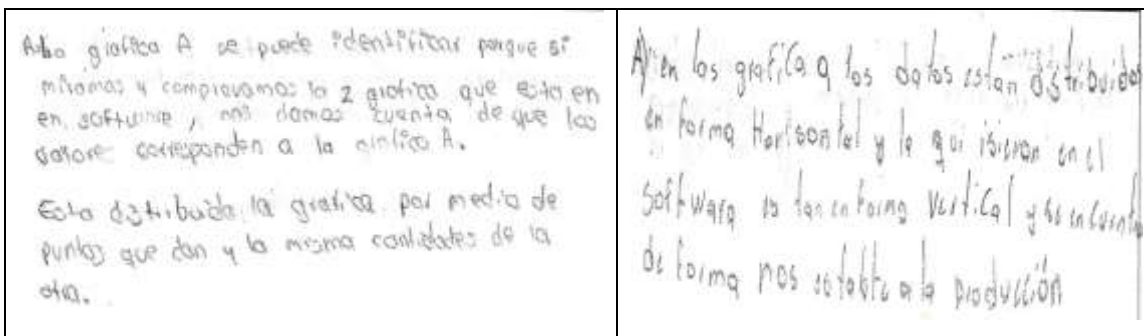 A. La grafica A se puede identificar porque si
miramos y compravamos la 2 grafica que esta en
en software, nos damos cuenta de que los
corresponden a la grafica A.
Esta distribuida la grafica por medio de
puntos que dan y la misma cantidades de la
otra.
A) en los grafica a los datos estan distribuidos
en forma Horisontal y la qui isieron en el
software es tan en forma vertical y se encuentra
de forma mos a la producción